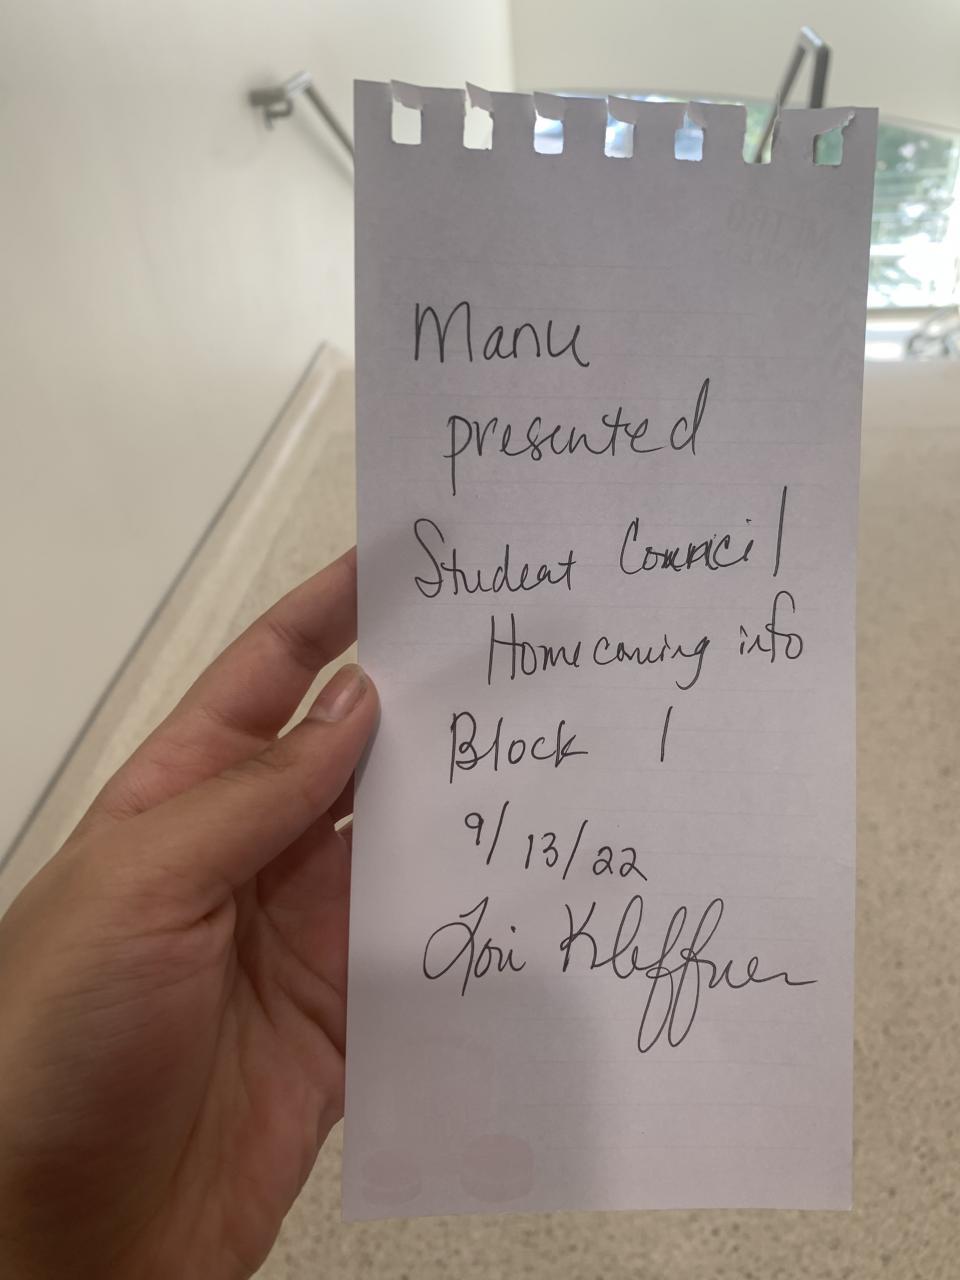 Manu
presented
Student Council
Homecoming info
Block 1
9/13/22
Lori Kleffner